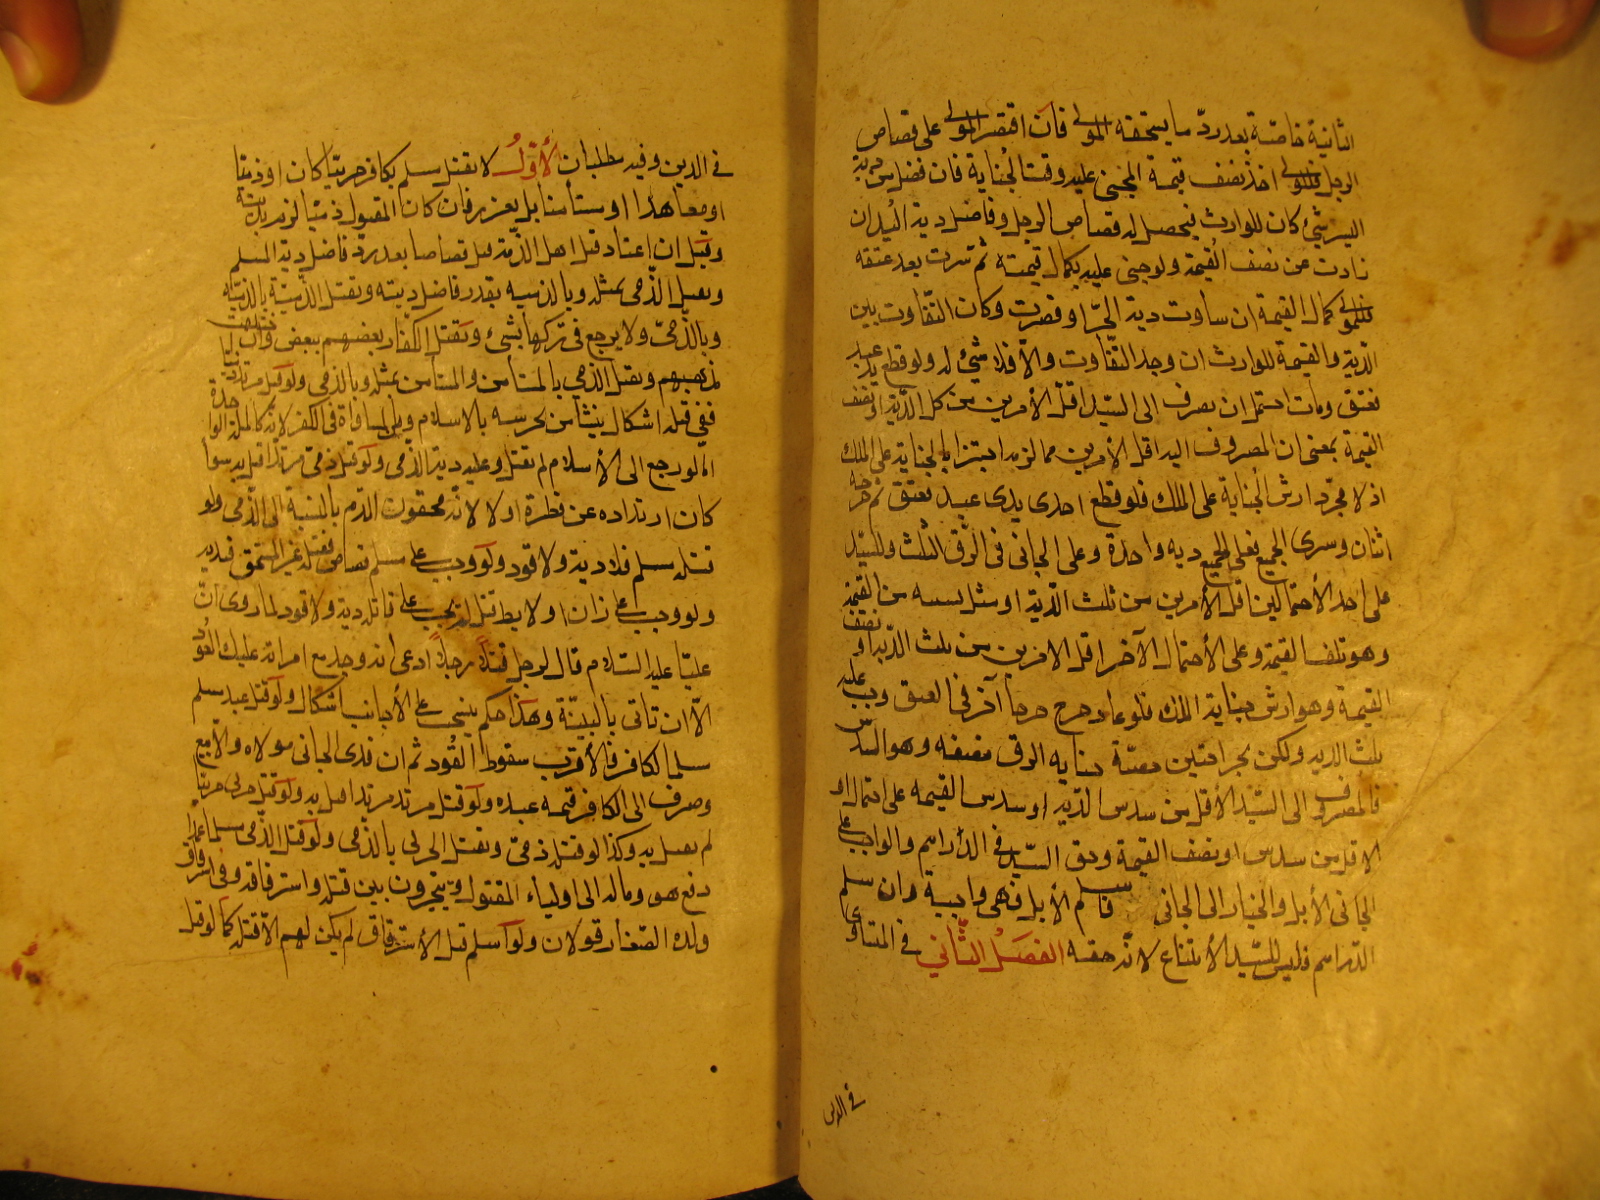 الثانية خاصّة بعد ردّ ما يستحقه المولى فان اقتصر المولى على قصاص
الرجل فللمولى اخذ نصف قيمة المجنى عليه وقت الجناية فان فضل من دية
اليسر شئ كان للوارث فيحصل له قصاص الرجل وفاضل دية اليد ان
زادت عن نصف القيمة ولو جنى عليه بكمال قيمته ثم سرت بعد عتقه
فللمولى كمال القيمة ان ساوت دية الحرّ او قصرت وكان التّفاوت بين
الدّية والقيمة للوارث ان وجد التّفاوت والّا فلا شئ له ولو قطع يد عبد
فعتق ومات احتمل ان يصرف الى السيّد اقلّ الأمرين من كل الدّية او نصف
القيمة بمعنى ان المصروف اليه اقل الأمرين مما لزمه اجتزا بالجناية على الملك
اذ لا مجرّد ارش الجناية على الملك فلو قطع احدى يدى عبد فعتق ثم جرحه
اثنان وسرى الجميع فعلى الجميع دية واحدة وعلى الجانى فى الرّق الثلث وللسيّد
على احد الأحتمالين اقل الأمرين من ثلث الدّية او مثل نسبته من القيمة
وهو ثلث القيمة وعلى الأحتمال الآخر اقل الامرين من ثلث الدّية او نصف
القيمة وهو ارش جناية الملك فلو عاد وجرح جرحا آخر فى العتق وجب عليه
ثلث الدية ولكن بجراحتين حصّة جناية الرق نصفه وهو السدّس
فالمصروف الى السيّد الأقل من سدس الدّية او سدس القيمة على احتمال او
الاقل من سدس او نصف القيمة وحق السيّد فى الدّراهم والواجب على
الجانى الأبل والخيار الى الجانى فان سلم الأبل فهى واجبة وان سلم
الدّراهم فليس للسيّد الأمتناع لانّه حقه الفصل الثّاني فى التساوى
فى الدين
فى الدين وفيه مطلبان الأوّل لا يقتل مسلم بكافر حربيّا كان او ذميّا
او معاهدا او مستأمنا بل يعزر فان كان المقتول ذميّا لزمه ديته
وقيل ان اعتاد قتل اهل الذّمة قتل قصاصا بعد ردّ فاضل دية المسلم
ويقتل الذّمى بمثله وبالذمّية بعد ردّ فاضل ديته وتقتل الذّميّة بالذّميّة
وبالذّمىّ ولا يرجع فى تركتها بشئ ويقتل الكفّار بعضهم ببعض وان اختلفت
مذهبهم ويقتل الذّمي بالمستأمن والمستأمن بمثله وبالذمى ولو قتل مرتدّ ذميّا
ففى قتله اشكال ينشأ من تحرمه بالاسلام ومن المساواة فى الكفر لانّه كالملّة الواحدة
امّا لو رجع الى الأسلام لم يقتل وعليه دية الذّمى ولو قتل ذمّى مرتدّا قتل به سواء
كان ارتداده عن فطرة او لا لانّه محقون الدّم بالنّسبة الى الذّمى ولو
قتله مسلم فلا دية ولا قود ولو وجب على مسلم قصاص فقتله غير المستحق قيد به
ولو وجب على زان او لايط قتل لم يجب على قاتله دية ولا قود لما روى انّ
عليّا عليه السّلام قال لرجل قتل رجلاً ادعى انه وجده مع امراته عليك القود
الّا ان تاتى بالبيّنة وهذا حكم ينسحب على الأجانب اشكال ولو قتل عبد مسلم
مسلما لكافر فالأقرب سقوط القود ثم ان فدى الجانى مولاه والّا بيع
وصرف الى الكافر قيمة عبده ولو قتل مرتد مرتدا قتل به ولو قتل حربى حربيّا
لم يقتل به وكذا لو قتله ذمّى ويقتل الحربى بالذّمى ولو قتل الذّمى مسلما عمدا
دفع هو وماله الى اولياء المقتول ويتخيّرون بين قتله واسترقاقه وفى استرقاق
ولده الصّغار قولان ولو اسلم قبل الأسترقاق لم يكن لهم الّا قتله كما لو قتل